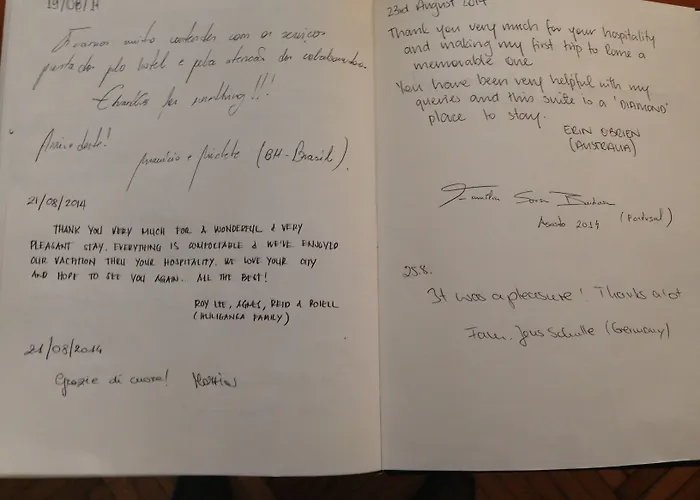 19/08/14
Ficamos muito contentes com os serviços
prestados pelo hotel e pela atenção dos colaboradores.
Thanks for everything!!!
(BH-Brasil).
21/08/2014
THANK YOU VERY MUCH FOR A WONDERFUL & VERY
PLEASANT STAY. EVERYTHING IS COMFOCTABLE & WE'VE ENJOYED
OUR VACATION THRU YOUR HOSPITALITY. WE LOVE YOUR CITY
AND HOPE TO SEE YOU AGAIN. ALL THE BEST!
ROY LEE, AGNES, REID &
(HULIGANGA FAMILY)
21/08/2014
Grazie di cuore!
23rd August 2014
Thank you very much for your hospitality
and making my first trip to Rome a
memorable one.
You have been very helpful with my
queries and this suite is a 'DIAMOND'
place to stay.
ERIN O'BRIEN
(AUSTRALIA)
Agosto 2014 (Portugal)
25.8.
It was a pleasure! Thanks a lot
Fam. Jens Schulle (Germany)